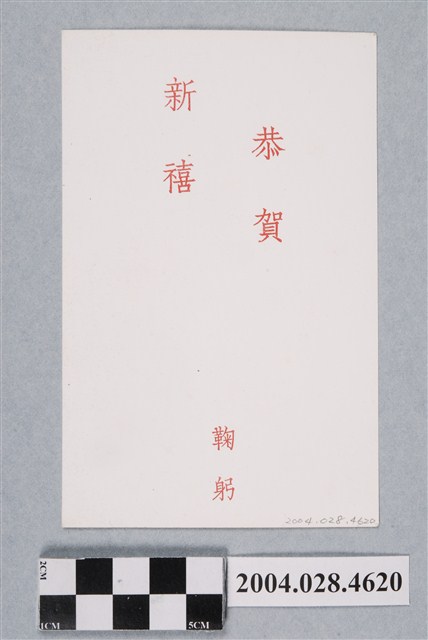 恭賀
新禧
鞠躬
2004.028.4620
2CM
1CM
5CM
2004.028.4620